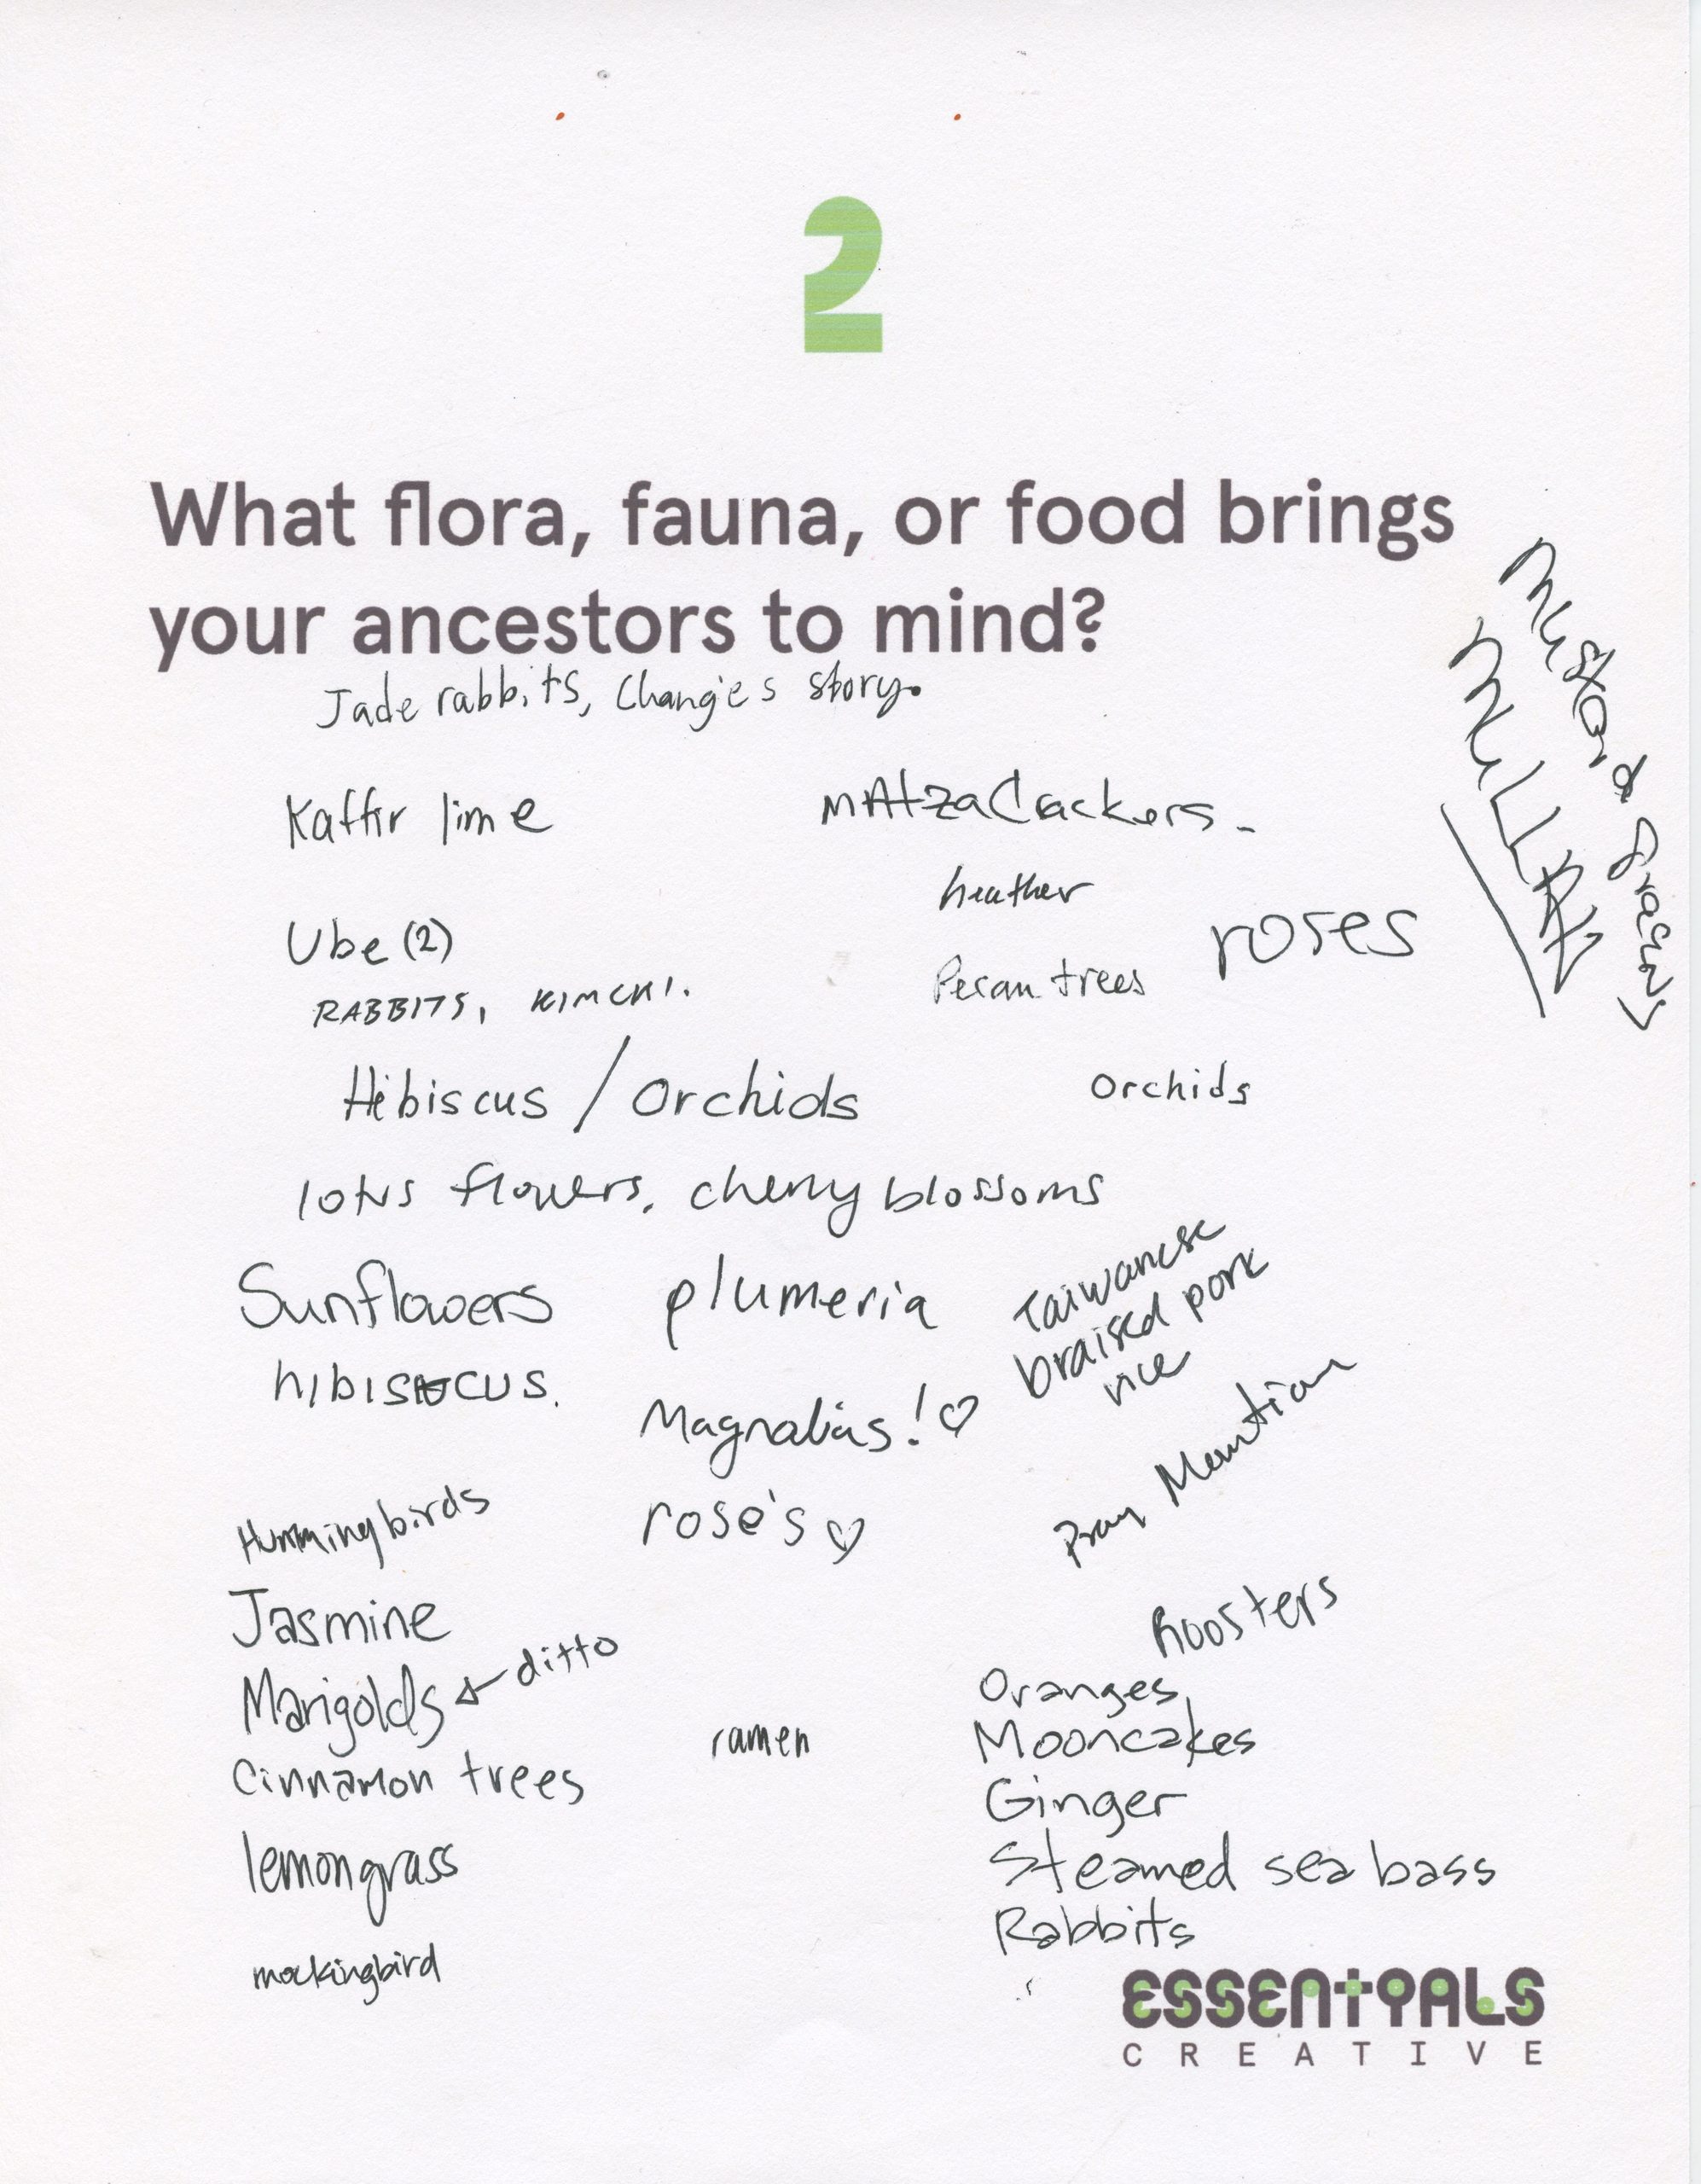 2
What flora, fauna, or food brings
your ancestors to mind?
Jade rabbits, Chang'e s story.
Kaffir lime
mAtza Crackers.
heather
roses
Ube (2)
Pecan trees
RABBITS, KIMCHI.
Mustard greens
MULLET
Hibiscus / Orchids
Orchids
lotus flowers. cherry blossoms
Sunflowers
plumeria
Taiwanese
braised pork
rice
hibiscus.
Magnolias! ♡
Pray Mantian
Hummingbirds
rose's ♡
Jasmine
Roosters
Marigolds ← ditto
Oranges
ramen
Mooncakes
Cinnamon trees
Ginger
lemongrass
Steamed sea bass
Rabbits
mockingbird
ESSENTIALS
CREATIVE